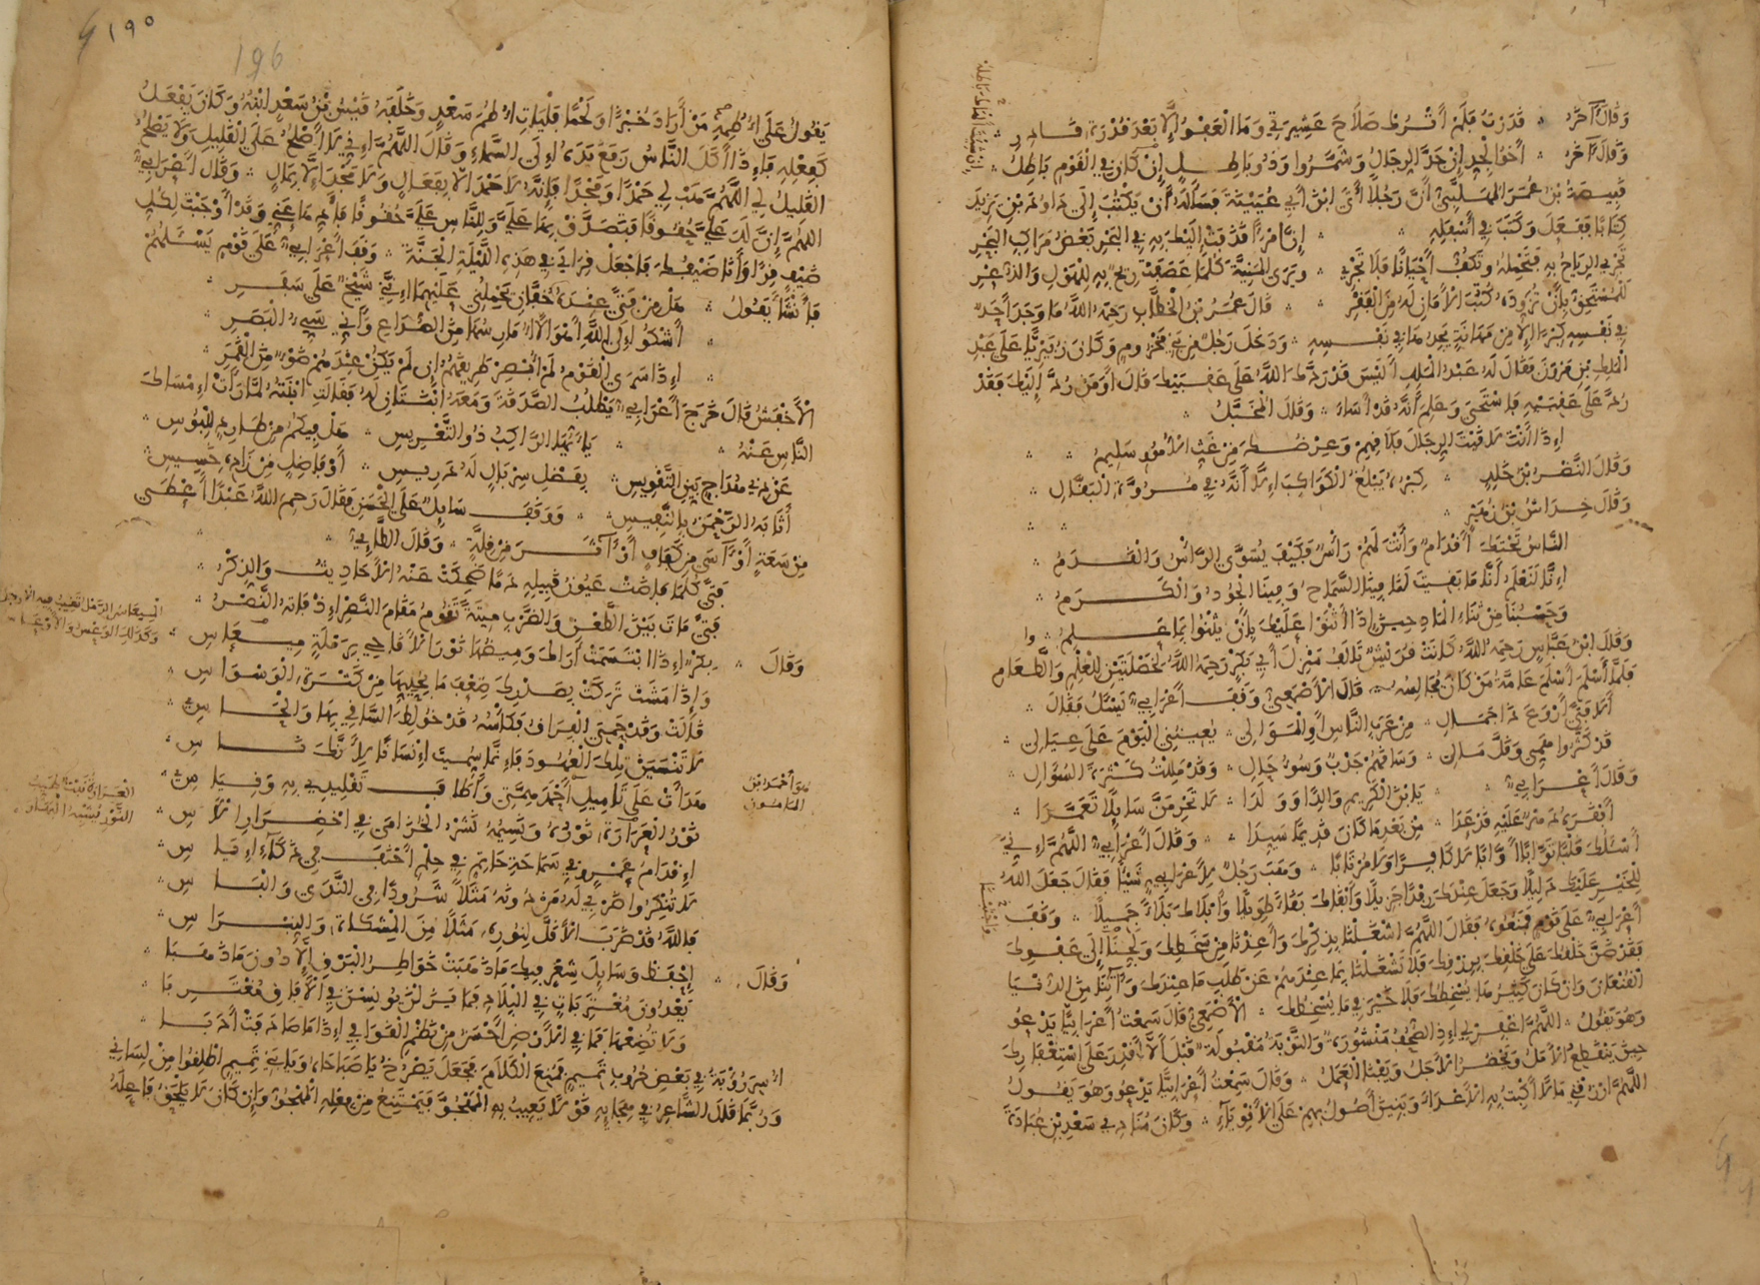 وَقَالَ آخَرُ ۞ قَدَرْتُ فَلَمْ أَتْرُكْ صَلَاحَ عَشِيرَتِي وَمَا الْعَفْوُ إِلَّا بَعْدَ قُدْرَةِ قَادِرِ
وَقَالَ آخَرُ ۞ أَخُو الْجِدِّ إِنْ جَدَّ الرِّجَالُ وَشَمَّرُوا وَذُو بَاطِلٍ إِنْ كَانَ فِي الْقَوْمِ بَاطِلُ
إِنْ شِئْتَ أَلْهَاكَ بَاطِلُهْ
قَبِيصَةُ بْنُ عُمَرَ الْمُهَلَّبِيُّ أَنَّ رَجُلًا أَتَى ابْنَ أَبِي عُيَيْنَةَ فَسَأَلَهُ أَنْ يَكْتُبَ إِلَى دَاوُدَ بْنِ يَزِيدَ
كِتَابًا فَفَعَلَ وَكَتَبَ فِي أَسْفَلِهِ ۞ إِنَّ امْرَأً قَذَفَتْ إِلَيْكَ بِهِ فِي الْبَحْرِ بَعْضُ مَرَاكِبِ الْبَحْرِ
تَجْرِي الرِّيَاحُ بِهِ فَتَحْمِلُهُ وَتَكُفُّ أَحْيَانًا فَلَا تَجْرِي ۞ وَيَرَى الْمَنِيَّةَ كُلَّمَا عَصَفَتْ رِيحٌ بِهِ لِلْهَوْلِ وَالذُّعْرِ
لَلْمُسْتَحِقُّ بِأَنْ تُزَوِّدَهُ كُتُبَ الْأَمَانِ لَهُ مِنَ الْفَقْرِ ۞ قَالَ عُمَرُ بْنُ الْخَطَّابِ رَحِمَهُ اللَّهُ مَا وَجَدَ أَحَدٌ
فِي نَفْسِهِ كِبْرًا إِلَّا مِنْ مَهَانَةٍ يَجِدُهَا فِي نَفْسِهِ ۞ وَدَخَلَ رَجُلٌ مِنْ بَنِي مَخْزُومٍ وَكَانَ زُبَيْرِيًّا عَلَى عَبْدِ
الْمَلِكِ بْنِ مَرْوَنَ فَقَالَ لَهُ عَبْدُ الْمَلِكِ أَلَيْسَ قَدْ رَدَّكَ اللَّهُ عَلَى عَقِبَيْكَ قَالَ أَوَمَنْ رُدَّ إِلَيْكَ فَقَدْ
رُدَّ عَلَى عَقِبَيْهِ فَاسْتَحَى وَعَلِمَ أَنَّهُ قَدْ أَسَاءَ ۞ وَقَالَ الْمُخَبَّلُ
إِذَا أَنْتَ لَاقَيْتَ الرِّجَالَ فَلَاقِهِمْ وَعِرْضُكَ مِنْ غَثِّ الْأُمُورِ سَلِيمُ
وَقَالَ النَّضْرُ بْنُ خَالِدٍ ۞ كِبْرٌ يَبْلُغُ الْكَوَاكِبَ إِلَّا أَنَّهُ فِي مُرُوَّةِ الْبَقَّالِ
وَقَالَ خِرَاشُ بْنُ زُهَيْرٍ
النَّاسُ تَحْتَكَ أَقْدَامٌ وَأَنْتَ لَهُمْ رَأْسٌ فَكَيْفَ يُسَوَّى الرَّأْسُ وَالْقَدَمُ
إِنَّا لَنَعْلَمُ أَنَّا مَا بَقِيتَ لَنَا فِينَا السَّمَاحُ وَفِينَا الْجُودُ وَالْكَرَمُ
وَحَسْبُنَا مِنْ ثَنَاءِ الْمَادِحِينَ إِذَا أَثْنَوْا عَلَيْكَ بِأَنْ يُثْنُوا بِمَا عَلِمُوا
وَقَالَ ابْنُ عَبَّاسٍ رَحِمَهُ اللَّهُ كَانَتْ قُرَيْشٌ تَأْلَفُ مَنْزِلَ أَبِي بَكْرٍ رَحِمَهُ اللَّهُ لِخَصْلَتَيْنِ لِلْعِلْمِ وَالطَّعَامِ
فَلَمَّا أَسْلَمَ أَسْلَمَ عَامَّةُ مَنْ كَانَ يُجَالِسُهُ ۞ قَالَ الْأَصْمَعِيُّ وَقَفَ أَعْرَابِيٌّ يَسْئَلُ فَقَالَ
أَلَا فَتًى أَرْوَعَ ذَا جَمَالِ ۞ مِنْ عَرَبِ النَّاسِ أَوِ الْمَوَالِي ۞ يُعِينُنِي الْيَوْمَ عَلَى عِيَالِي
قَدْ كَثُرُوا هَمِّي وَقَلَّ مَالِي ۞ وَسَاقَهُمْ جَدْبٌ وَسُوءُ حَالِ ۞ وَقَدْ مَلِلْتُ كَثْرَةَ السُّؤَالِ
وَقَالَ أَعْرَابِيٌّ ۞ يَا بْنَ الْكَرِيمِ وَالِدًا وَوَلَدَا ۞ لَا تَحْرِمَنَّ سَائِلًا تَعَمَّدَا
أَفْقَرَهُ دَهْرٌ عَلَيْهِ قَدْ عَدَا ۞ مِنْ بَعْدِ مَا كَانَ قَدِيمًا سَيِّدَا ۞ وَقَالَ أَعْرَابِيٌّ اللَّهُمَّ إِنِّي
أَسْئَلُكَ قَلْبًا تَوَّابًا لَا كَافِرًا وَلَا مُرْتَابًا ۞ وَهَبَ رَجُلٌ لِأَعْرَابِيٍّ شَيْئًا فَقَالَ جَعَلَ اللَّهُ
لِلْخَيْرِ عَلَيْكَ دَلِيلًا وَجَعَلَ عِنْدَكَ رِفْدًا جَزِيلًا وَأَبْقَاكَ بَقَاءً طَوِيلًا وَأَبْلَاكَ بَلَاءً جَمِيلًا ۞ وَقَفَ
أَعْرَابِيٌّ عَلَى قَوْمٍ فَمَنَعُوهُ فَقَالَ اللَّهُمَّ اشْغَلْنَا بِذِكْرِكَ وَأَعِذْنَا مِنْ سَخَطِكَ وَأَلْحِينَا إِلَى عَفْوِكَ
فَقَدْ ضَنَّ خَلْقُكَ عَلَى خَلْقِكَ بِرِزْقِكَ فَلَا تَشْغَلْنَا بِمَا عِنْدَهُمْ عَنْ طَلَبِ مَا عِنْدَكَ وَآتِنَا مِنَ الدُّنْيَا
الْقُنْعَانَ وَإِنْ كَانَ كَثِيرُهَا يُسْخِطُكَ فَلَا خَيْرَ فِيمَا يُسْخِطُكَ ۞ الْأَصْمَعِيُّ قَالَ سَمِعْتُ أَعْرَابِيًّا يَدْعُو
وَهُوَ يَقُولُ ۞ اللَّهُمَّ اغْفِرْ لِي إِذِ الصُّحُفُ مَنْشُورَةٌ وَالتَّوْبَةُ مَقْبُولَةٌ قَبْلَ أَلَّا أَقْدِرَ عَلَى اسْتِغْفَارِكَ
حِينَ يَنْقَطِعُ الْأَمَلُ وَيَحْضُرُ الْأَجَلُ وَيَفْنَى الْعَمَلُ ۞ وَقَالَ سَمِعْتُ أَعْرَابِيًّا يَدْعُو وَهُوَ يَقُولُ
اللَّهُمَّ ارْزُقْنِي مَالًا أَكْبِتُ بِهِ الْأَعْدَاءَ وَبَنِينَ أَصُولُ بِهِمْ عَلَى الْأَقْوِيَاءِ ۞ وَكَانَ مُنَادِي سَعْدِ بْنِ عُبَادَةَ
١٩٥
196
يَقُولُ عَلَى أُطُمِهِ مَنْ أَرَادَ خُبْزًا وَلَحْمًا فَلْيَأْتِ أُطُمَ سَعْدٍ وَخَلَفَهُ قَيْسُ بْنُ سَعْدٍ ابْنُهُ وَكَانَ يَفْعَلُ
كَفِعْلِهِ فَإِذَا أَكَلَ النَّاسُ رَفَعَ يَدَهُ إِلَى السَّمَاءِ وَقَالَ اللَّهُمَّ إِنِّي لَا أَصْلُحُ عَلَى الْقَلِيلِ وَلَا يَصْلُحُ
الْقَلِيلُ لِي اللَّهُمَّ هَبْ لِي حَمْدًا وَمَجْدًا فَإِنَّهُ لَا حَمْدَ إِلَّا بِفَعَالٍ وَلَا مَجْدَ إِلَّا بِمَالٍ ۞ وَقَالَ أَعْرَابِيٌّ
اللَّهُمَّ إِنَّ لَكَ عَلَيَّ حُقُوقًا فَتَصَدَّقْ بِهَا عَلَيَّ وَلِلنَّاسِ عَلَيَّ حُقُوقًا فَأَدِّهَا عَنِّي وَقَدْ أَوْجَبْتَ لِكُلِّ
ضَيْفٍ قِرًى وَأَنَا ضَيْفُكَ فَاجْعَلْ قِرَايَ فِي هَذِهِ اللَّيْلَةِ الْجَنَّةَ ۞ وَقَفَ أَعْرَابِيٌّ عَلَى قَوْمٍ يَسْئَلُهُمْ
فَأَنْشَأَ يَقُولُ ۞ هَلْ مِنْ فَتًى عِنْدَهُ خُفَّانِ يَحْمِلُنِي عَلَيْهِمَا إِنَّنِي شَيْخٌ عَلَى سَفَرِ
أَشْكُو إِلَى اللَّهِ أَهْوَالًا أُمَارِسُهَا مِنَ الصُّدَاعِ وَأَنِّي سَيِّءُ الْبَصَرِ
إِذَا سَرَى الْقَوْمُ لَمْ أُبْصِرْ طَرِيقَهُمُ إِنْ لَمْ يَكُنْ عِنْدَهُمْ ضَوْءٌ مِنَ الْقَمَرِ
الْأَخْفَشُ قَالَ خَرَجَ أَعْرَابِيٌّ يَطْلُبُ الصَّدَقَةَ وَمَعَهُ ابْنَتَانِ لَهُ فَقَالَتِ ابْنَتُهُ لَمَّا رَأَتْ إِمْسَاكَ
النَّاسِ عَنْهُ ۞ يَا أَيُّهَا الرَّاكِبُ ذُو التَّعْرِيسِ ۞ هَلْ فِيكُمُ مِنْ طَارِدٍ لِلْبُوسِ
بِفَضْلِ سِرْبَالٍ لَهُ دَرِيسِ ۞ أَوْ فَاضِلٍ مِنْ زَادِهِ خَسِيسِ
أَثَابَهُ الرَّحْمَنُ بِالنَّفِيسِ ۞ وَوَقَفَ سَائِلٌ عَلَى الْحَسَنِ فَقَالَ رَحِمَ اللَّهُ عَبْدًا أَعْطَى
مِنْ سَعَةٍ أَوْ آسَى مِنْ كَفَافٍ أَوْ آثَرَ مِنْ قِلَّةٍ ۞ وَقَالَ الطَّائِيُّ
فَتًى كُلَّمَا فَاضَتْ عُيُونُ قَبِيلَةٍ دَمًا ضَحِكَتْ عَنْهُ الْأَحَادِيثُ وَالذِّكْرُ
فَتًى مَاتَ بَيْنَ الطَّعْنِ وَالضَّرْبِ مِيتَةً تَقُومُ مَقَامَ النَّصْرِ إِذْ فَاتَهُ النَّصْرُ
وَقَالَ ۞ بِكْرٌ إِذَا ابْتَسَمَتْ أَرَاكَ وَمِيضُهَا نَوْرَ الْأَقَاحِي بِرَمْلَةٍ مِيعَاسِ
وَإِذَا مَشَتْ تَرَكَتْ بِصَدْرِكَ ضِعْفَ مَا بِحُلِيِّهَا مِنْ كَثْرَةِ الْوَسْوَاسِ
قَالَتْ وَقَدْ حُمَّ الْفِرَاقُ فَكَأْسُهُ قَدْ خُولِطَ السَّاقِي بِهَا وَالْحَاسِي
لَا تَنْسَيَنَّ تِلْكَ الْعُهُودَ فَإِنَّمَا سُمِّيتَ إِنْسَانًا لِأَنَّكَ نَاسِ
هَدَأَتْ عَلَى تَأْمِيلِ أَحْمَدَ هِمَّتِي وَأَطَافَ تَقْلِيدِي بِهِ وَقِيَاسِي
نَوْرُ الْعَرَارَةِ نَوْرُهُ وَنَسِيمُهُ نَشْرُ الْخُزَامَى فِي اخْضِرَارِ الْآسِ
إِقْدَامُ عَمْرٍو فِي سَمَاحَةِ حَاتِمٍ فِي حِلْمِ أَحْنَفَ فِي ذَكَاءِ إِيَاسِ
لَا تُنْكِرُوا ضَرْبِي لَهُ مَنْ دُونَهُ مَثَلًا شَرُودًا فِي النَّدَى وَالْبَاسِ
فَاللَّهُ قَدْ ضَرَبَ الْأَقَلَّ لِنُورِهِ مَثَلًا مِنَ الْمِشْكَاةِ وَالنِّبْرَاسِ
وَقَالَ ۞ إِحْفَظْ وَسَائِلَ شِعْرٍ فِيكَ مَا ذَهَبَتْ خَوَاطِرُ الْبَرْقِ إِلَّا دُونَ مَا ذَهَبَا
يَغْدُونَ مُغْتَرِبَاتٍ فِي الْبِلَادِ فَمَا يَزَلْنَ يُونِسْنَ فِي الْآفَاقِ مُغْتَرِبَا
وَلَا تُضِعْهَا فَمَا فِي الْأَرْضِ أَحْسَنُ مِنْ نَظْمِ الْقَوَافِي إِذَا مَا صَادَفَتْ أَدَبَا
أُسِرَ رُؤْبَةُ فِي بَعْضِ حُرُوبِ تَمِيمٍ فَمُنِعَ الْكَلَامَ فَجَعَلَ يَصْرُخُ يَا صَبَاحَاهُ وَيَا بَنِي تَمِيمٍ اطْلِقُوا مِنْ لِسَانِي
وَرُبَّمَا قَالَ الشَّاعِرُ فِي هِجَائِهِ قَوْلًا يَعِيبُ بِهِ الْمَهْجُوَّ فَيَمْتَنِعُ مِنْ فِعْلِهِ الْمَهْجُوُّ وَإِنْ كَانَ لَا يَلْحَقُ فَاعِلَهُ
هو أحمد بن المأمون